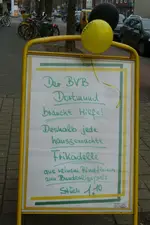 Der BVB
Dortmund
braucht Hilfe!
Deshalb jede
hausgemachte
Frikadelle
aus reinem Rindfleisch
zum Bundesligapreis
Stück 1,10